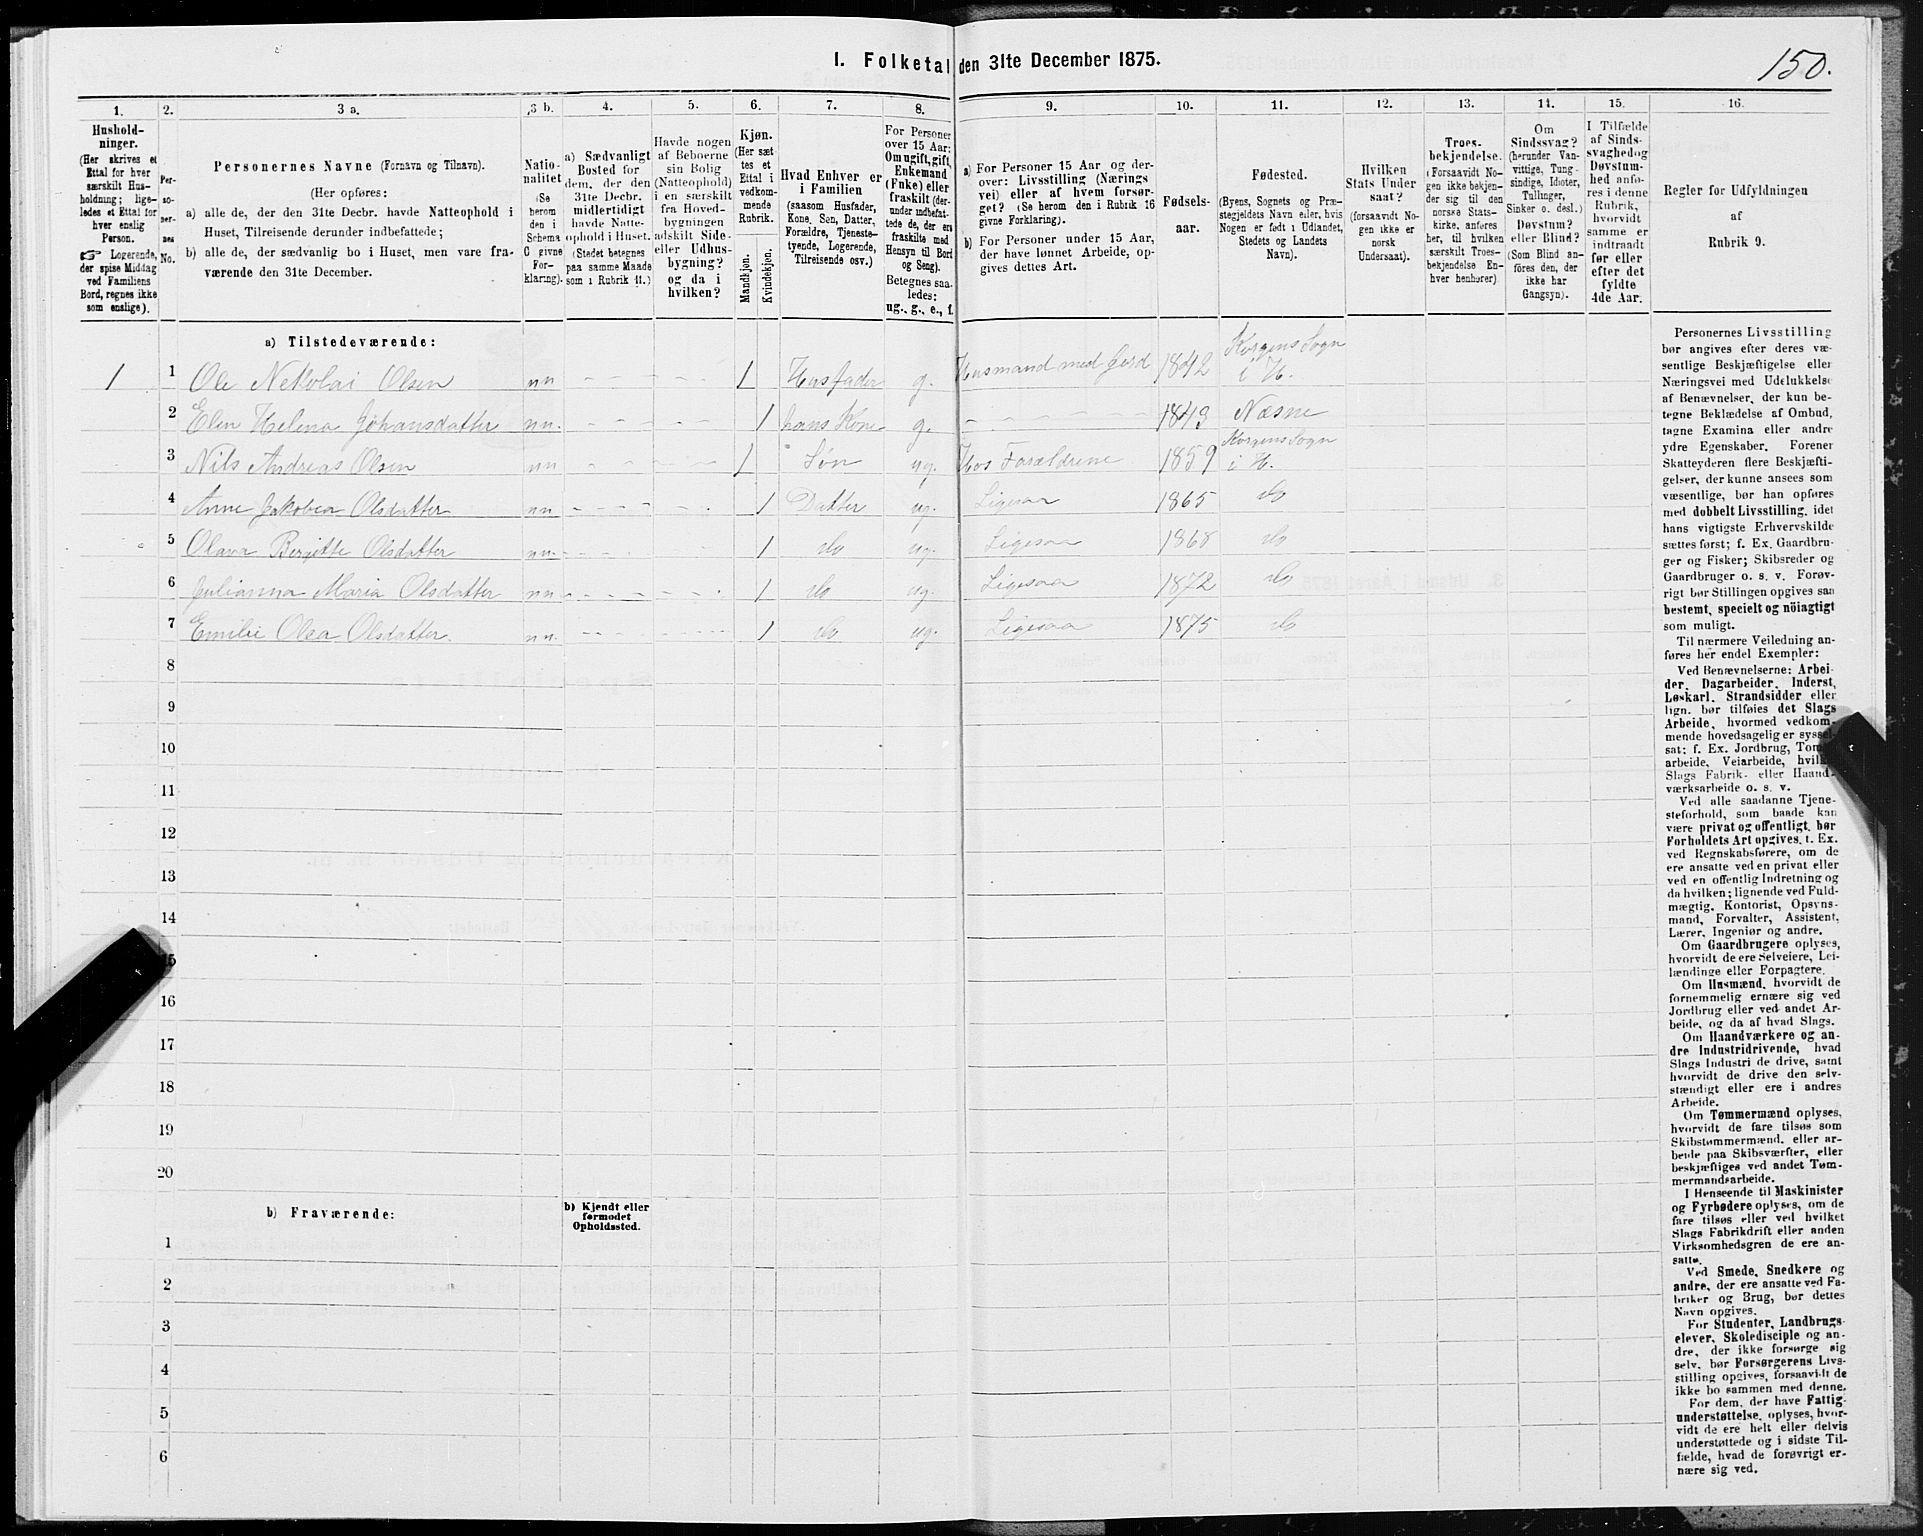 I. Folketal den 31te December 1875.
150.
1.
2.
3 a.
3 b.
4.
5.
6.
7.
8.
9.
10.
11.
12.
13.
14.
15.
16.
Hushold-
ninger.
(Her skrives et
Ettal for hver
særskilt Hus-
holdning; lige-
ledes et Ettal for
hver enslig
Person.
☞ Logerende,
der spise Middag
ved Familiens
Bord, regnes ikke
som enslige).
Per-
so-
ner-
nes
No.
Personernes Navne (Fornavn og Tilnavn).
(Her opføres:
a) alle de, der den 31te Decbr. havde Natteophold i
Huset, Tilreisende derunder indbefattede;
b) alle de, der sædvanlig bo i Huset, men vare fra-
værende den 31te December.
Natio-
nalitet
(Se
herom
den i
Schema
C givne
For-
klaring).
a) Sædvanligt
Bosted for
dem, der den
31te Decbr.
midlertidigt
havde Natte-
ophold i Huset.
(Stedet betegnes
paa samme Maade
som i Rubrik 11.)
Havde nogen
af Beboerne
sin Bolig
(Natteophold)
i en særskilt
fra Hoved-
bygningen
adskilt Side-
eller Udhus-
bygning?
og da i
hvilken?
Kjøn.
(Her sæt
tes et
Ettal i
vedkom-
mende
Rubrik.
Mandkjøn.
Kvindekjøn.
Hvad Enhver er
i Familien
(saasom Husfader,
Kone, Søn, Datter,
Forældre, Tjeneste-
tyende, Logerende,
Tilreisende osv.)
For Personer
over 15 Aar:
Om ugift, gift,
Enkemand
(Enke) eller
fraskilt (der-
under indbefat-
tede de, der ere
fraskilte med
Hensyn til Bord
og Seng).
Betegnes saa-
ledes:
ug., g., e., f.
a) For Personer 15 Aar og der-
over: Livsstilling (Nærings
vei) eller af hvem forsør-
get? (Se herom den i Rubrik 16
givne Forklaring).
b) For Personer under 15 Aar,
der have lønnet Arbeide, op-
gives dettes Art.
Fødsels-
aar.
Fødested.
(Byens, Sognets og Præ-
stegjeldets Navn eller, hvis
Nogen er født i Udlandet,
Stedets og Landets
Navn).
Hvilken
Stats Under
saat?
(forsaavidt No-
gen ikke er
norsk
Undersaat).
Troes-
bekjendelse.
(Forsaavidt No-
gen ikke bekjen-
der sig til den
norske Stats-
kirke, anføres
her, til hvilken
særskilt Troes-
bekjendelse En-
hver henhører)
Om
Sindssvag?
(herunder Van-
vittige, Tung-
sindige, Idioter,
Tullinger,
Sinker o. desl.)
Døvstum?
eller Blind?
(Som Blind an-
føres den, der
ikke har
Gangsyn).
I Tilfælde
af Sinds-
svaghed og
Døvstum-
hed anfø-
res i denne
Rubrik,
hvorvidt
samme er
indtraadt
før eller
efter det
fyldte
4de Aar.
Regler for Udfyldningen
af
Rubrik 9.
a) Tilstedeværende:
1 1 Ole Nekolai Olsen nn 1 Husfader g. Husmand med Jord 1842 Korgens Sogn i H.
2 Elen Helena Johansdatter nn. 1 hans Kone g. 1843 Næsne
3 Nils Andreas Olsen nn 1 Søn ug. Hos Forældrene 1859 Korgens Sogn i H.
4 Anne Jakobea Olsdatter nn 1 Datter ug. Ligesaa 1865 do
5 Olava Bergitte Olsdatter nn. 1 do ug. Ligesaa 1868 do
6 Julianna Maria Olsdatter nn. 1 do ug. Ligesaa 1872 do
7 Emilie Olea Olsdatter. nn. 1 do ug. Ligesaa 1875 do
8
9
10
11
12
13
14
15
16
17
18
19
20
b) Fraværende:
b) Kjendt eller
formodet
Opholdssted.
1
2
3
4
5
6
Personernes Livsstilling
bør angives efter deres væ-
sentlige Beskjæftigelse eller
Næringsvei med Udelukkelse
af Benævnelser, der kun be-
tegne Beklædelse af Ombud,
tagne Examina eller andre
ydre Egenskaber. Forener
Skatteyderen flere Beskjæfti-
gelser, der kunne ansees som
væsentlige, bør han opføres
med dobbelt Livsstilling, idet
hans vigtigste Erhvervskilde
sættes først; f. Ex. Gaardbru-
ger og Fisker; Skibsreder og
Gaardbruger o. s. v. Forøv-
rigt bør Stillingen opgives saa
bestemt, specielt og nöiagtigt
som muligt.
Til nærmere Veiledning an-
føres her endel Exempler:
Ved Benævnelserne: Arbei-
der, Dagarbeider, Inderst,
Løskarl, Strandsidder eller
lign. bør tilføies det Slags
Arbeide, hvormed vedkom-
mende hovedsagelig er syssel-
sat; f. Ex. Jordbrug, Tom-
arbeide, Veiarbeide, hvilk-
Slags Fabrik- eller Haand-
værksarbeide o. s. v.
Ved alle saadanne Tjene-
steforhold, som baade kan
være privat og offentligt, bør
Forholdets Art opgives, t. Ex.
ved Regnskabsførere, om de
ere ansatte ved en privat eller
ved en offentlig Indretning og
da hvilken; lignende ved Fuld-
mægtig, Kontorist, Opsyns-
mand, Forvalter, Assistent,
Lærer, Ingeniør og andre.
Om Gaardbrugere oplyses,
hvorvidt de ere Selveiere, Lei-
lændinge eller Forpagtere.
Om Husmænd, hvorvidt de
fornemmelig ernære sig ved
Jordbrug eller ved andet Ar-
beide, og da af hvad Slags.
Om Haandværkere og an-
dre Industridrivende, hvad
Slags Industri de drive, samt
hvorvidt de drive den selv-
stændigt eller ere i andres
Arbeide.
Om Tømmermænd oplyses,
hvorvidt de fare tilsøs som
Skibstømmermænd, eller ar-
beide paa Skibsværfter, eller
beskjæftiges ved andet Tøm-
mermandsarbeide.
I Henseende til Maskinister
og Fyrbødere oplyses, om de
fare tilsøs eller ved hvilket
Slags Fabrikdrift eller anden
Virksomhedsgren de ere an-
satte.
Ved Smede, Snedkere og
andre, der ere ansatte ved Fa-
briker og Brug, bør dettes
Navn opgives.
For Studenter, Landbrugs-
elever, Skoledisciple og an-
dre, der ikke forsørge sig
selv, bør Forsørgerens Livs-
stilling opgives, forsaavidt de
ikke bo sammen med denne.
For dem, der have Fattig-
understøttelse, oplyses, hvor-
vidt de ere helt eller delvis
understøttede og i sidste Til-
fælde, hvad de forøvrigt er-
nære sig ved.